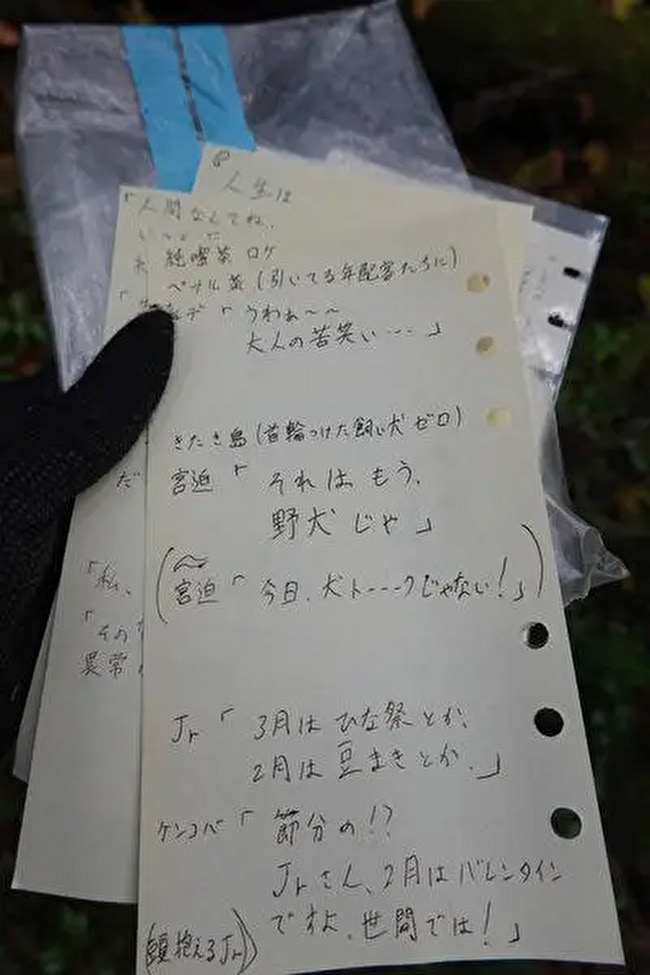 人生は
「人間なんてね、
純喫茶 ロケ
ペサル茶 (引いてる年配客たちに)
「うわぁ〜〜
大人の苦笑い…」
きたき島 (首輪つけた飼い犬 ゼロ)
だ
宮迫「それは もう、
野犬じゃ」
「私、
(宮迫「今日、犬トーークじゃない!」)
「その
異常
Jr「3月は ひな祭とか、
2月は 豆まきとか。」
ケンコバ「節分の!?
Jrさん、2月は バレンタイン
ですよ、世間では!」
(頭抱えるJr)